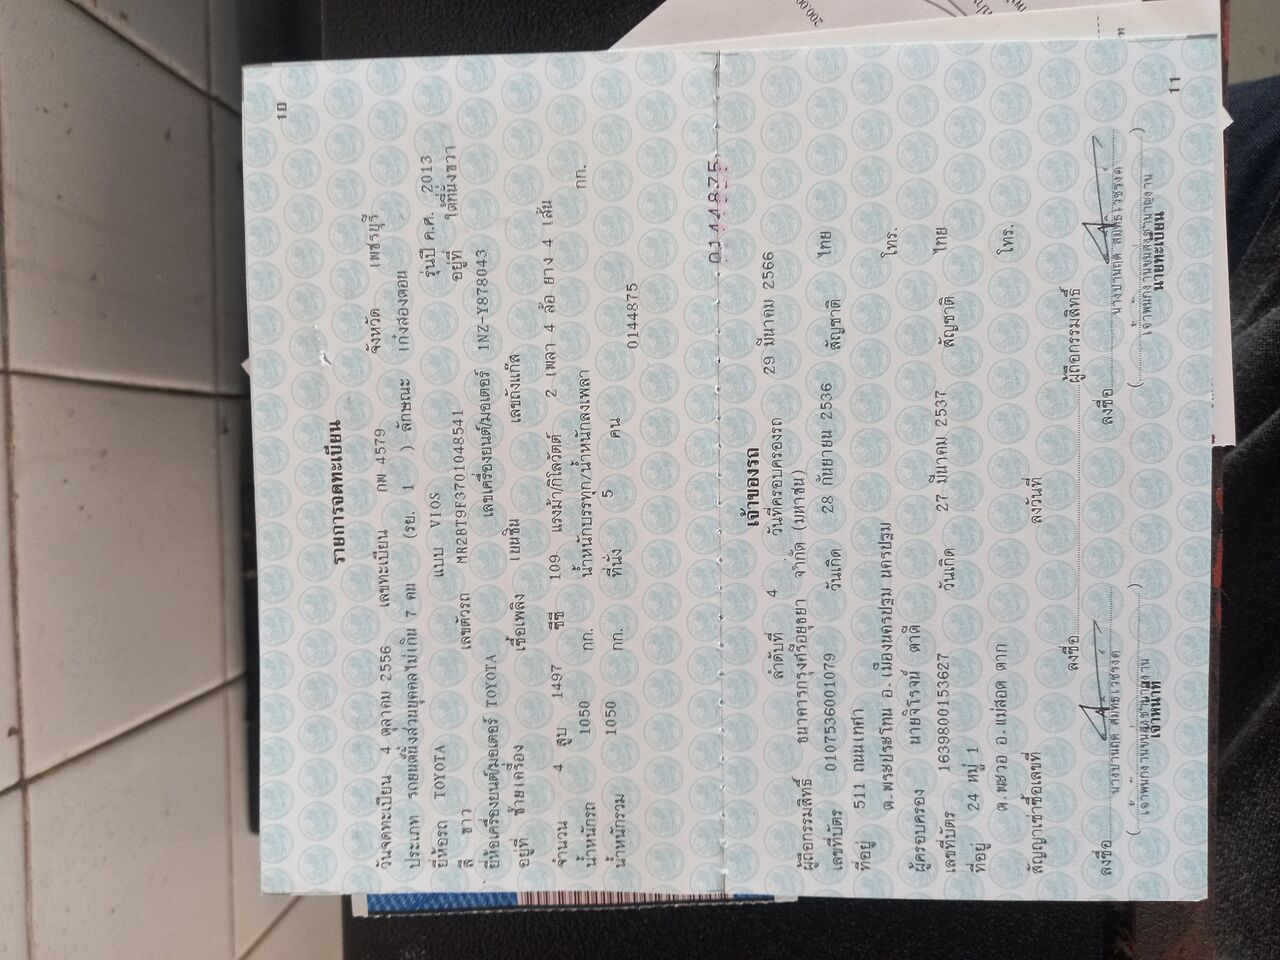 10
รายการจดทะเบียน
วันจดทะเบียน 4 ตุลาคม 2556 เลขทะเบียน กพ 4579 จังหวัด เพชรบุรี
ประเภท รถยนต์นั่งส่วนบุคคลไม่เกิน 7 คน (รย. 1 ) ลักษณะ เก๋งสองตอน
ยี่ห้อรถ TOYOTA แบบ VIOS รุ่นปี ค.ศ. 2013
สี ขาว เลขตัวรถ MR2BT9F3701048541 อยู่ที่ ใต้ที่นั่งขวา
ยี่ห้อเครื่องยนต์/มอเตอร์ TOYOTA เลขเครื่องยนต์/มอเตอร์ 1NZ-Y878043
อยู่ที่ ซ้ายเครื่อง เชื้อเพลิง เบนซิน เลขถังแก๊ส
จำนวน 4 สูบ 1497 ซีซี 109 แรงม้า/กิโลวัตต์ 2 เพลา 4 ล้อ ยาง 4 เส้น
น้ำหนักรถ 1050 กก. น้ำหนักบรรทุก/น้ำหนักลงเพลา กก.
น้ำหนักรวม 1050 กก. ที่นั่ง 5 คน
0144875
0144875
เจ้าของรถ
ลำดับที่ 4 วันที่ครอบครองรถ 29 มีนาคม 2566
ผู้ถือกรรมสิทธิ์ ธนาคารกรุงศรีอยุธยา จำกัด (มหาชน)
เลขที่บัตร 0107536001079 วันเกิด 28 กันยายน 2536 สัญชาติ ไทย
ที่อยู่ 511 ถนนเทศา
ต.พระประโทน อ.เมืองนครปฐม นครปฐม โทร.
ผู้ครอบครอง นายจิรโรจน์ ตาดี
เลขที่บัตร 1639800153627 วันเกิด 27 มีนาคม 2537 สัญชาติ ไทย
ที่อยู่ 24 หมู่ 1
ต.พะวอ อ.แม่สอด ตาก โทร.
สัญญาเช่าซื้อเลขที่ ลงวันที่
ลงชื่อ ผู้ถือกรรมสิทธิ์
ลงชื่อ ลงชื่อ
เจ้าหน้าที่ นายทะเบียน
11